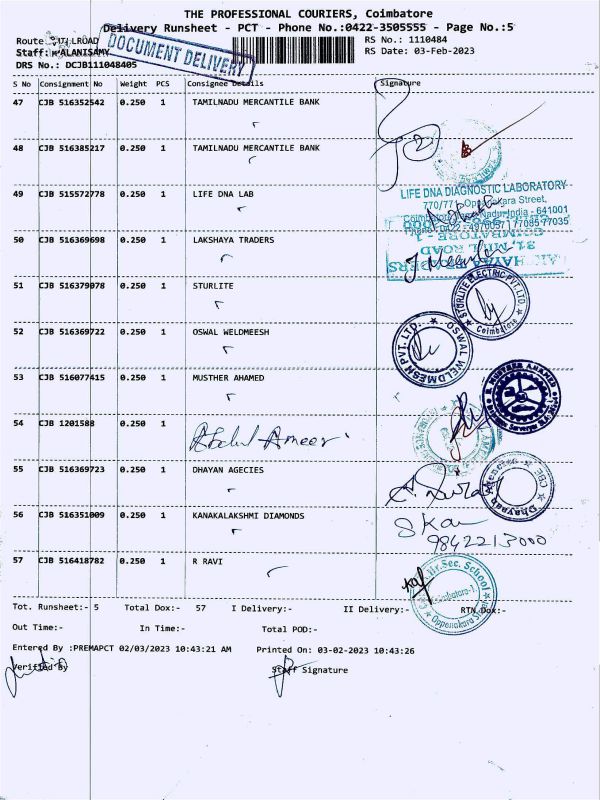 THE PROFESSIONAL COURIERS, Coimbatore
Delivery Runsheet - PCT - Phone No.:0422-3505555 - Page No.:5
Route
RS No.: 1110484
DOCUMENT DELIVERY
RS Date: 03-Feb-2023
DRS No.: DCJB111048405
S No Consignment No Weight PCS Consignee Details Signature
47 CJB 516352542 0.250 1 TAMILNADU MERCANTILE BANK
48 CJB 516385217 0.250 1 TAMILNADU MERCANTILE BANK
2
49 CJB 515572778 0.250 1 LIFE DNA LAB
LIFE DNA DIAGNOSTIC LABORATORY
50 CJB 516369698 0.250 1 LAKSHAYA TRADERS
51 CJB 516379078 0.250 1 STURLITE
STURLITE ELECTRIC PVT. LTD. Coimbatore
52 CJB 516369722 0.250 1 OSWAL WELDMEESH
OSWAL WELDMESH PVT. LTD.
53 CJB 516077415 0.250 1 MUSTHER AHAMED
54 CJB 1201588 0.250 1 Abdul Ameer
55 CJB 516369723 0.250 1 DHAYAN AGECIES
Dhayan Agencies CBE
56 CJB 516351009 0.250 1 KANAKALAKSHMI DIAMONDS
9842213000
57 CJB 516418782 0.250 1 R RAVI
Hr.Sec. School
Tot. Runsheet:- 5 Total Dox:- 57 I Delivery:- II Delivery:- RTN Dox:-
Out Time:- In Time:- Total POD:-
Entered By :PREMAPCT 02/03/2023 10:43:21 AM Printed On: 03-02-2023 10:43:26
Verified By Staff Signature